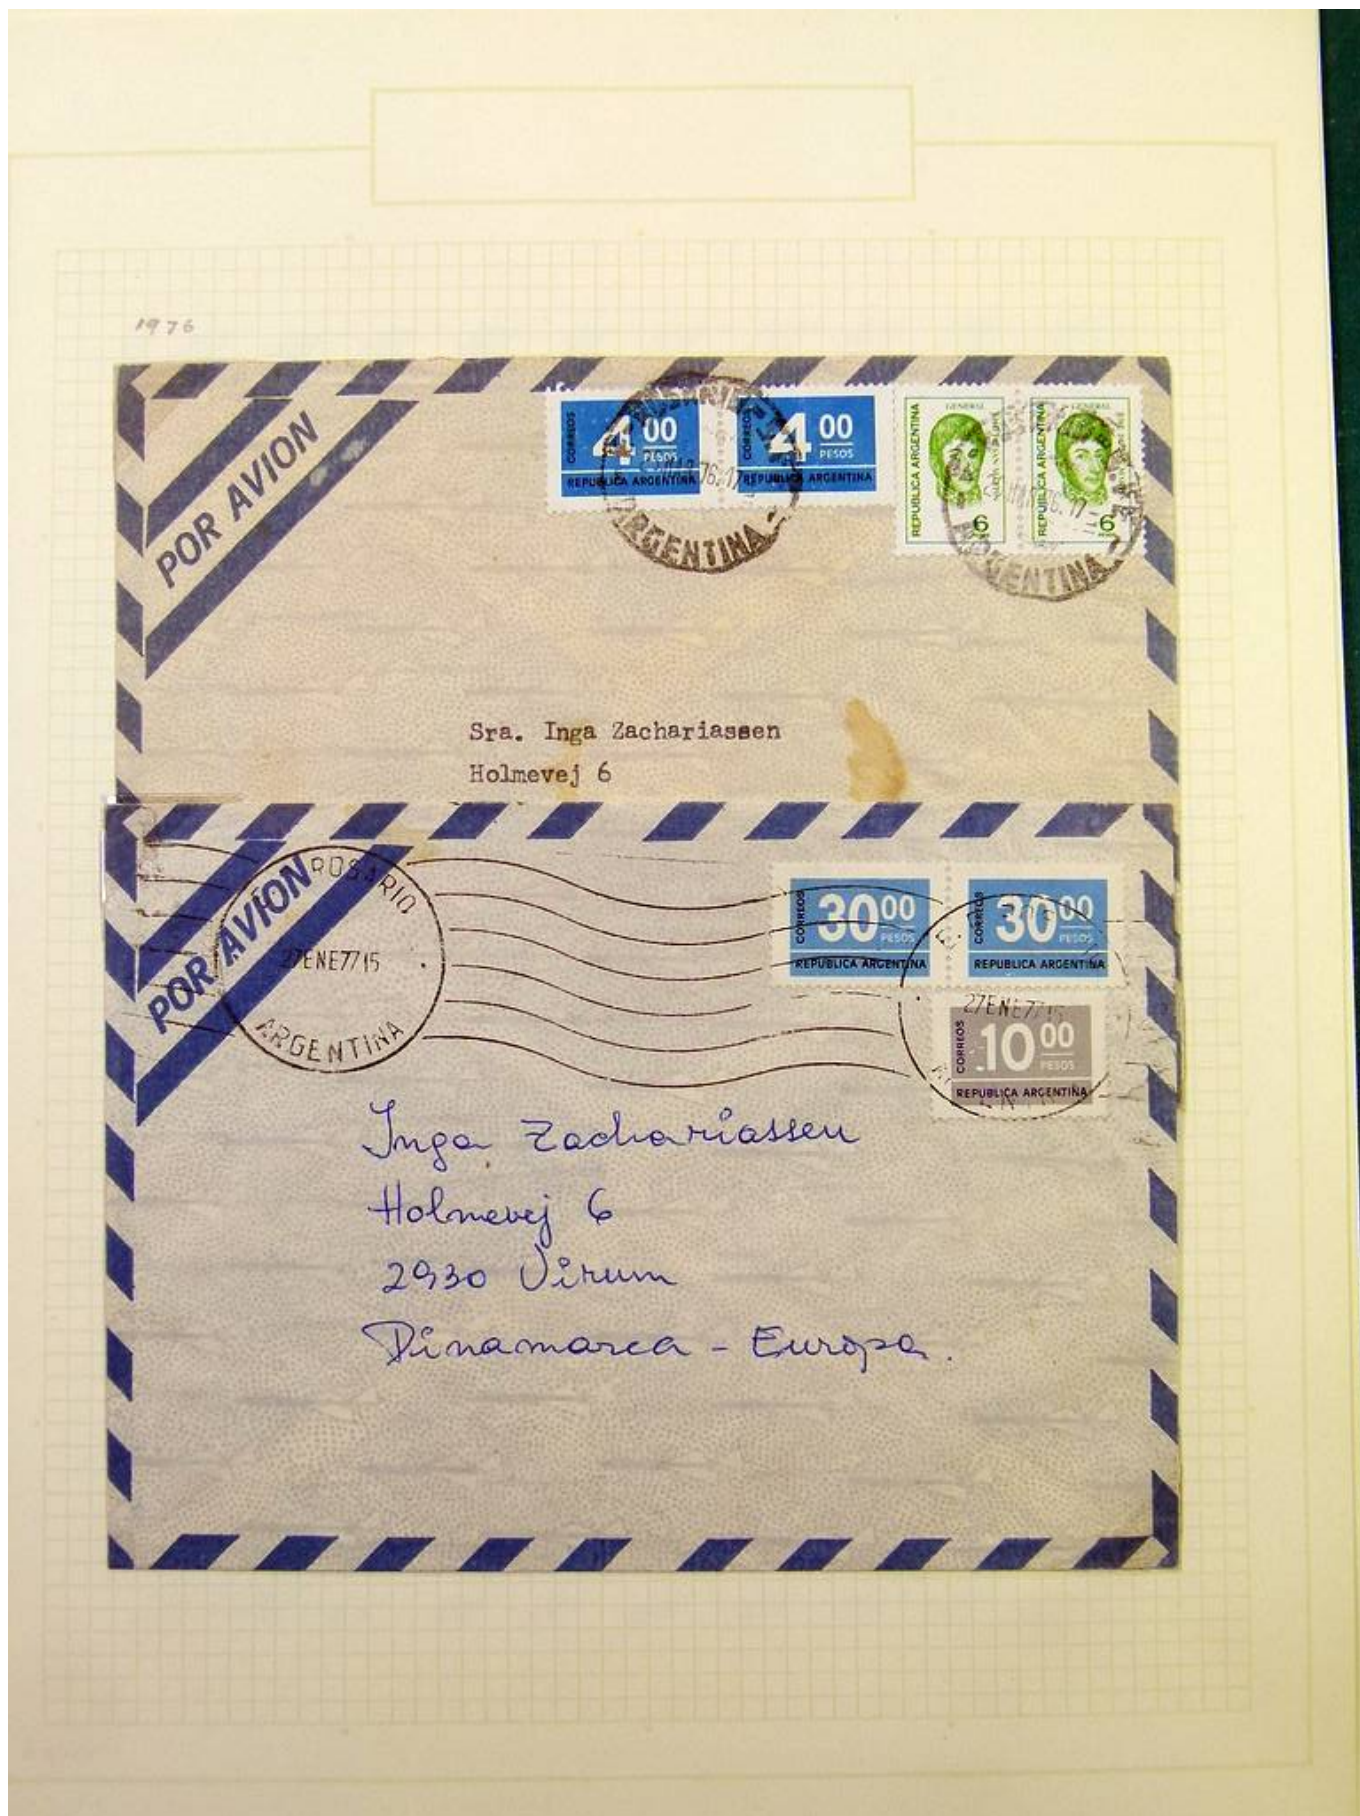 1976
POR AVION
CORREOS
4 00
PESOS
REPUBLICA ARGENTINA
CORREOS
4 00
PESOS
REPUBLICA ARGENTINA
GENERAL
REPUBLICA ARGENTINA
6
GENERAL
REPUBLICA ARGENTINA
6
76.17
ARGENTINA
76.17
ARGENTINA
Sra. Inga Zachariassen
Holmevej 6
POR AVION
ROSARIO
27ENE7715
ARGENTINA
CORREOS
30 00
PESOS
REPUBLICA ARGENTINA
CORREOS
30 00
PESOS
REPUBLICA ARGENTINA
27ENE7715
CORREOS
10 00
PESOS
REPUBLICA ARGENTINA
Inga Zachariassen
Holmevej 6
2930 Virum
Dinamarca - Europa.